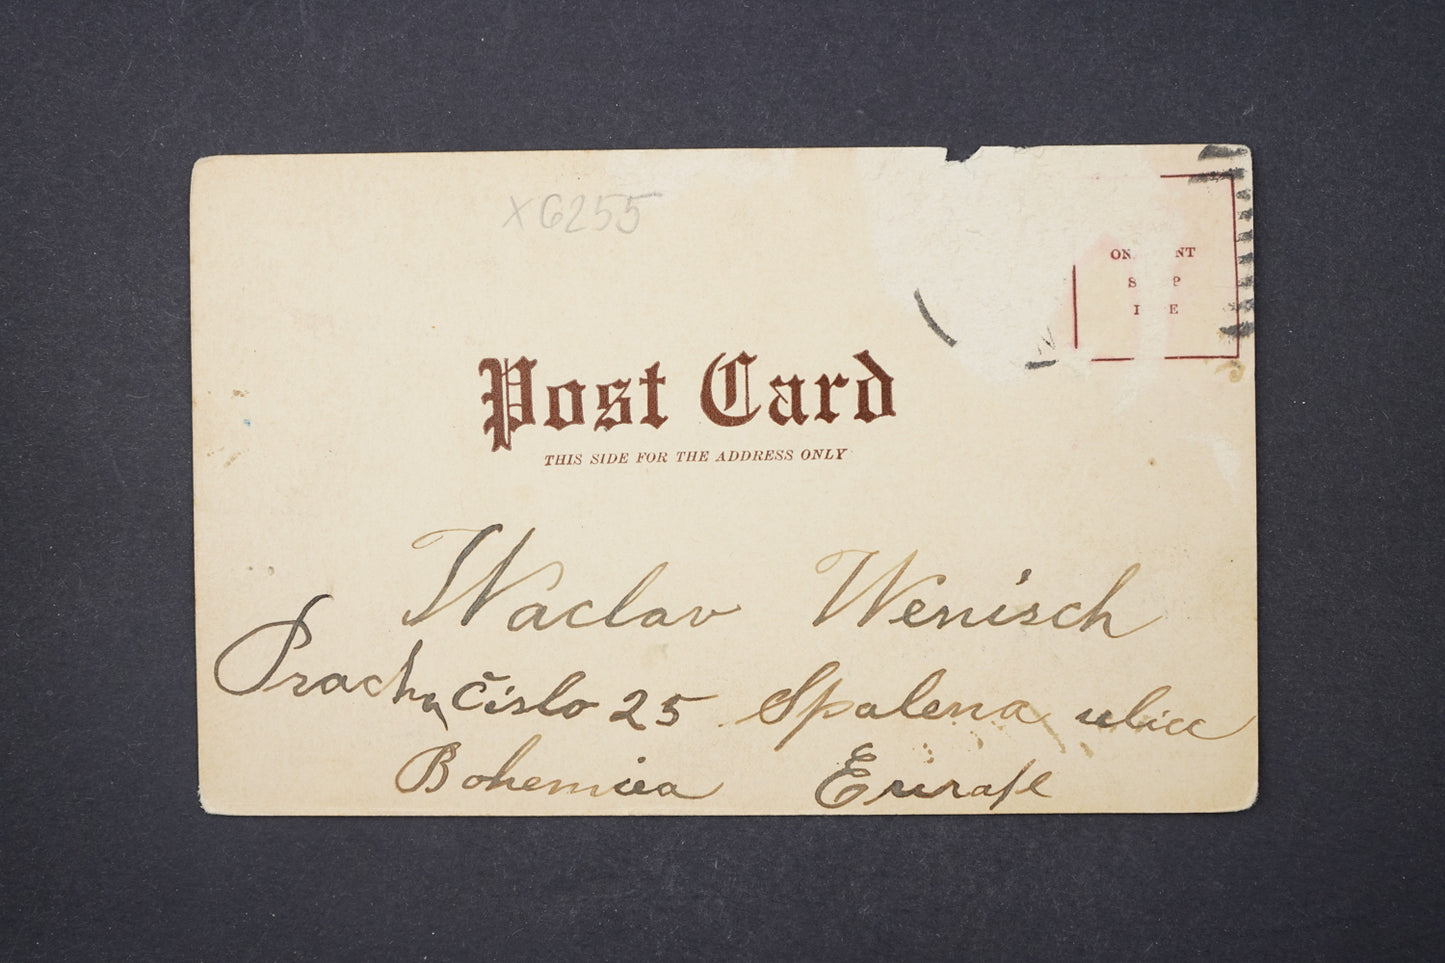 X6255
ON NT
S P
I E
Post Card
THIS SIDE FOR THE ADDRESS ONLY
Waclav Wenisch
Pracha číslo 25 Spalena ulice
Bohemiea